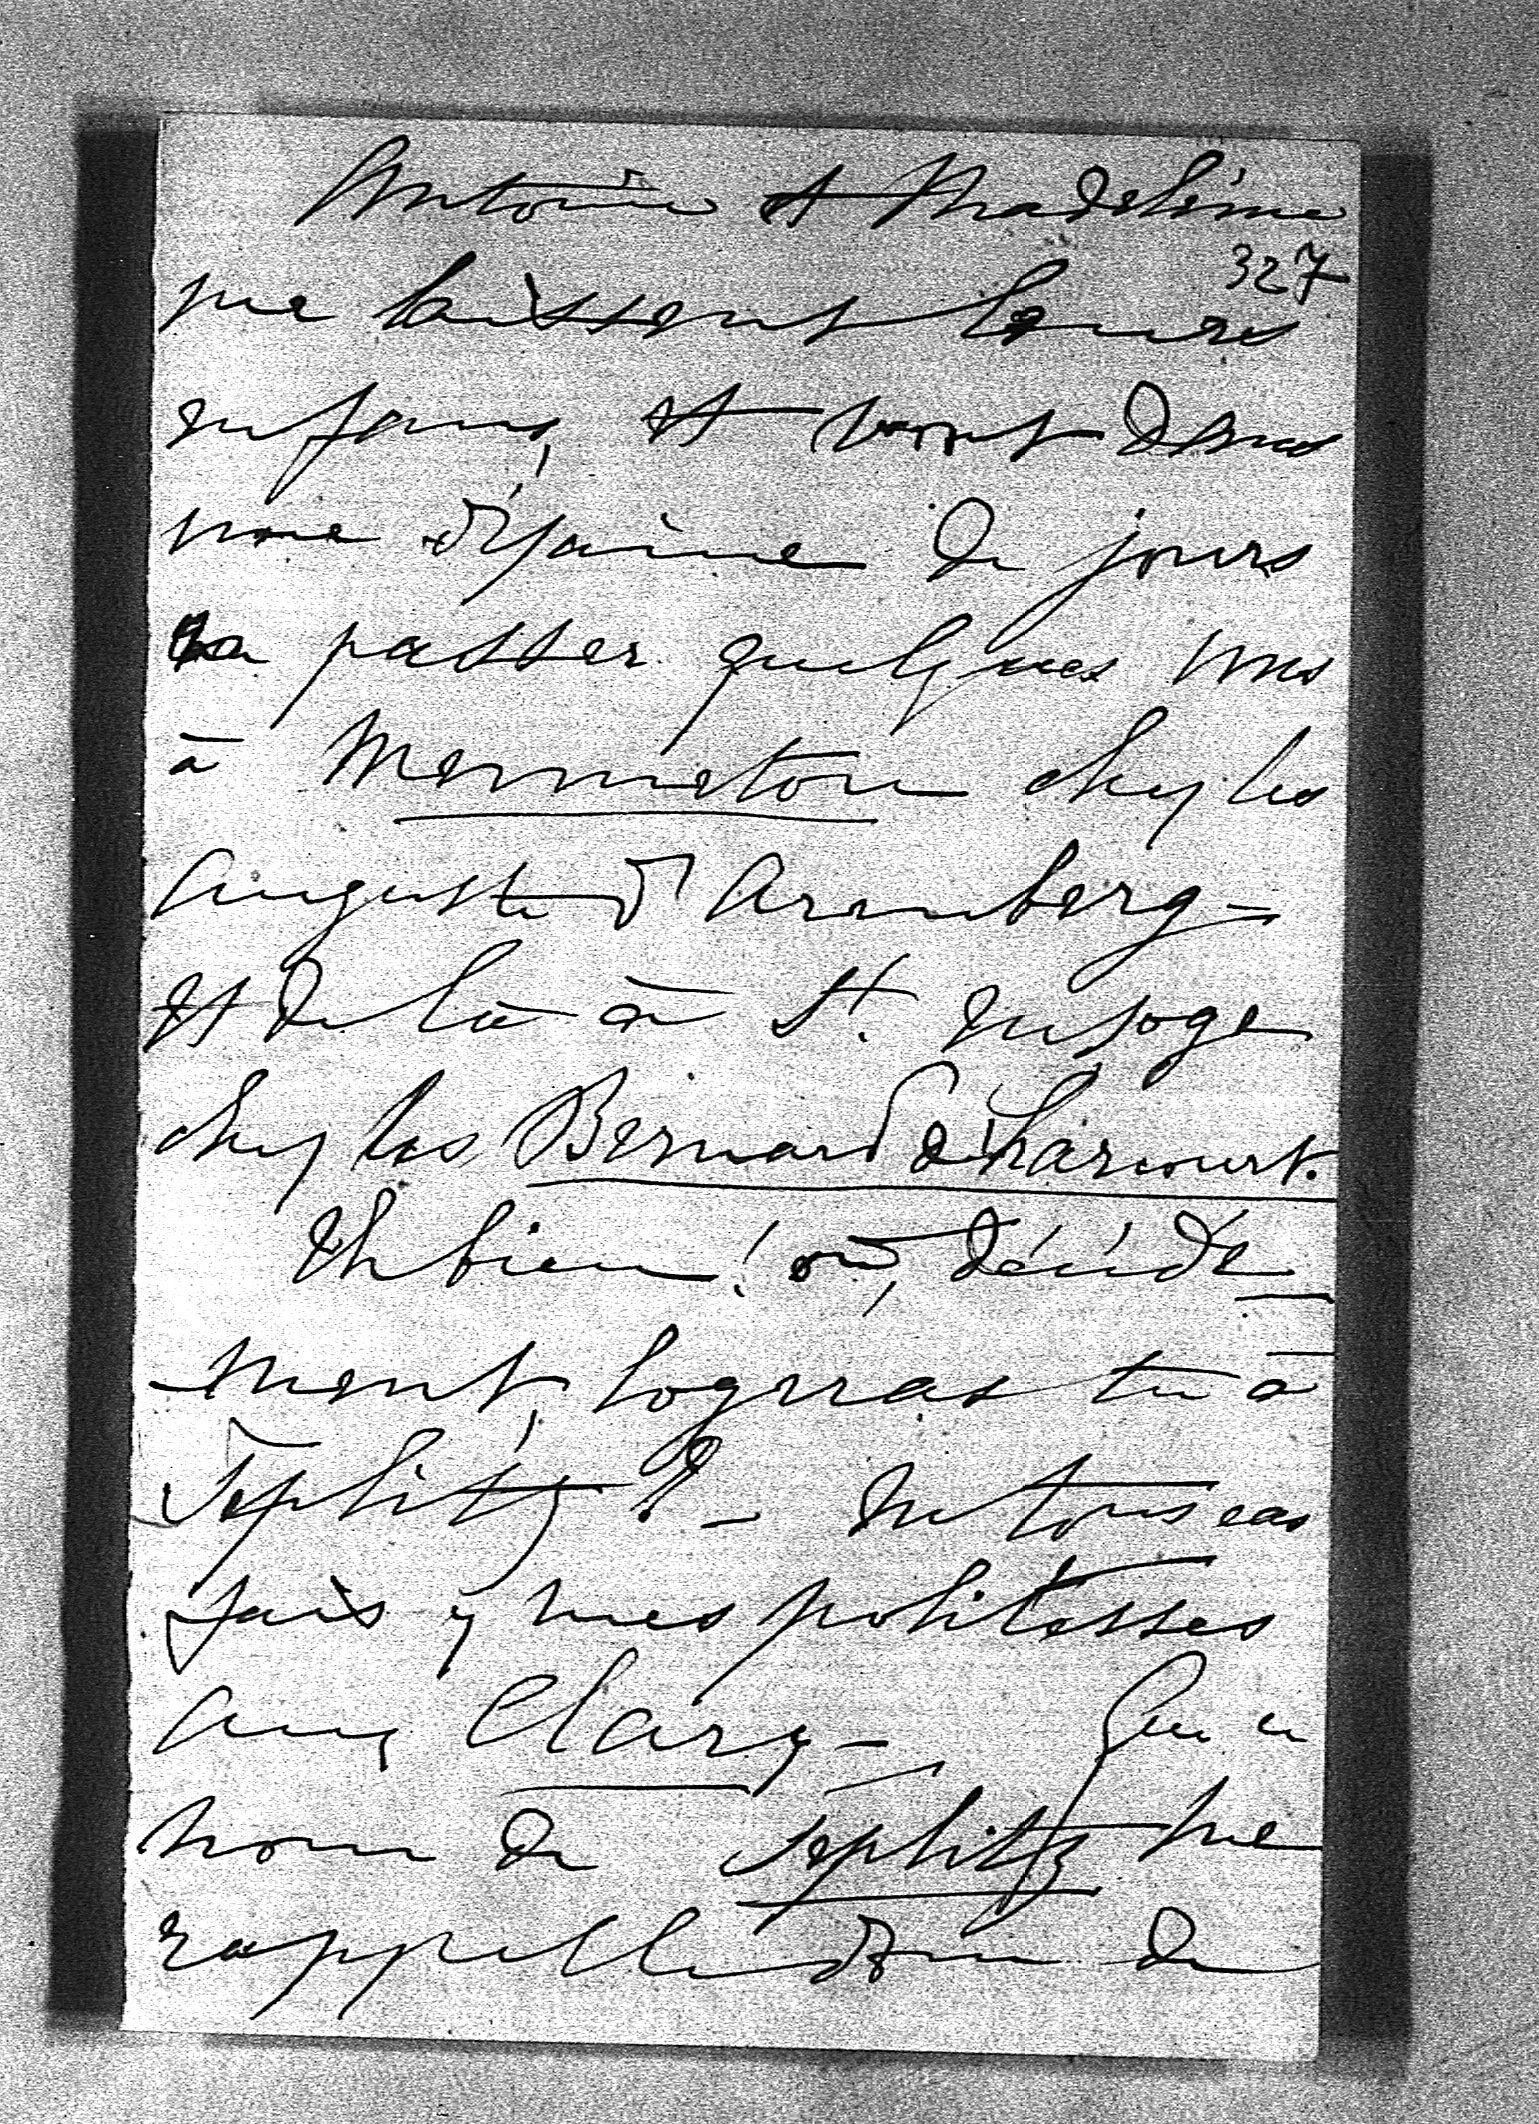 Antoine et Madeleine
327
me laissent leurs
enfans, et vont dans
une dizaine de jours
passer quelques uns
à Mennetou chez les
Auguste d'Arenberg –
et de là à St. Eusoge
chez les Bernard d'harcourt.
Eh bien! où, décidé
ment, logeras tu à
Teplitz? – En tous cas
fais y mes politesses
aux Clary – Que ce
nom de Teplitz me
rappelle donc de